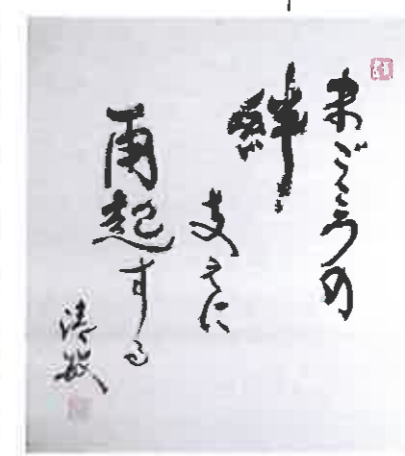 まごころの
絆
支えに
再起する
清敏